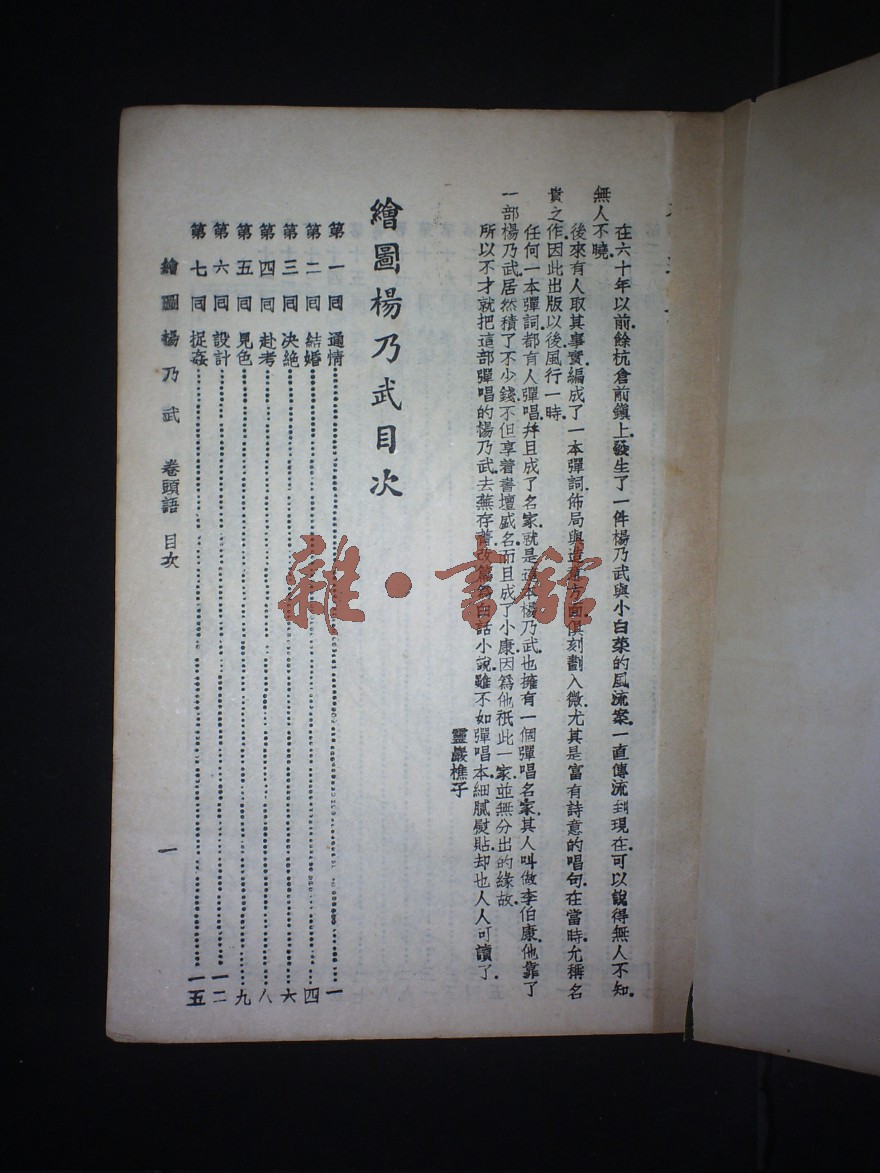 在六十年以前餘杭倉前鎭上發生了一件楊乃武與小白菜的風流案一直傳流到現在可以說得無人不知
無人不曉
後來有人取其事實編成了一本彈詞佈局與 方面俱刻劃入微尤其是富有詩意的唱句在當時允稱名
貴之作因此出版以後風行一時
任何一本彈詞都有人彈唱幷且成了名家就是這本楊乃武也擁有一個彈唱名家其人叫做李伯康他靠了
一部楊乃武居然積了不少錢不但享着書壇盛名而且成了小康因爲他祇此一家並無分出的緣故
所以不才就把這部彈唱的楊乃武去蕪存菁改篇爲白話小說雖不如彈唱本細膩熨貼却也人人可讀了
靈巖樵子
繪圖楊乃武目次
第一回 通情 一
第二回 結婚 四
第三回 決絕 六
第四回 赴考 八
第五回 見色 九
第六回 設計 一二
第七回 捉姦 一五
繪圖楊乃武 卷頭語 目次 一
雜·書館